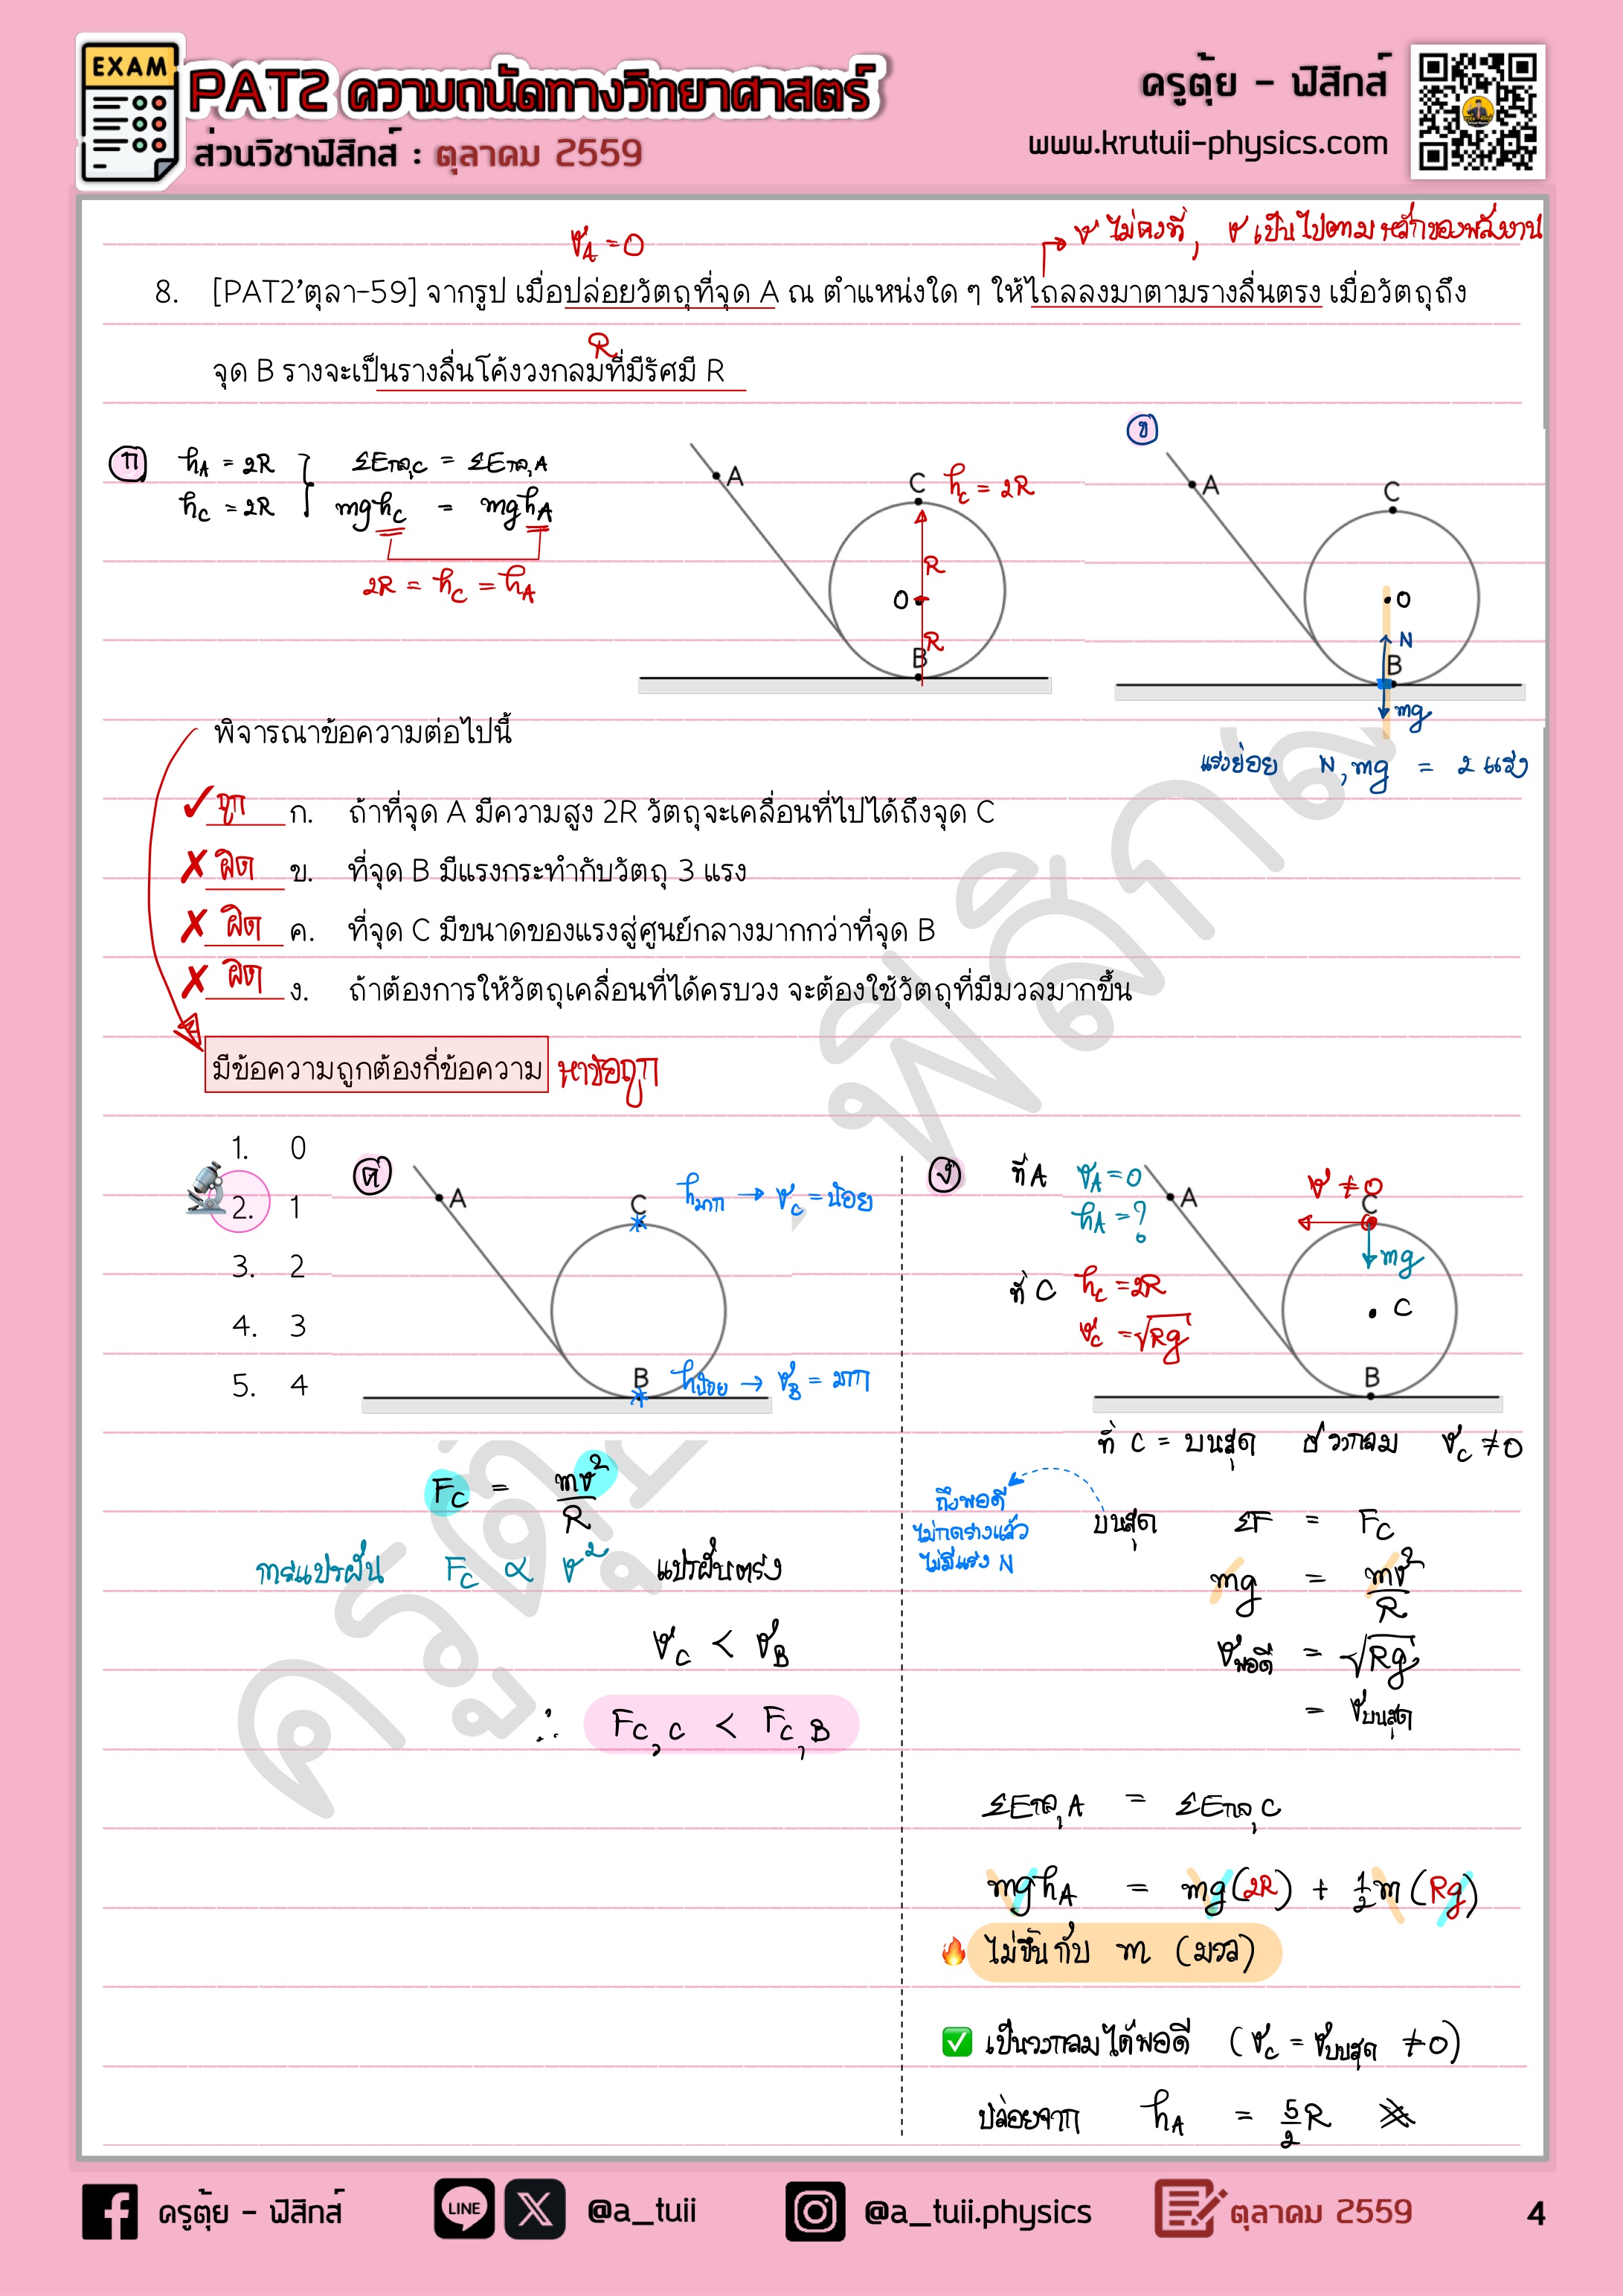 EXAM
PAT2 ความถนัดทางวิทยาศาสตร์
ส่วนวิชาฟิสิกส์ : ตุลาคม 2559
ครูตุ้ย - ฟิสิกส์
www.krutuii-physics.com
v_A = 0
v ไม่คงที่, v เป็นไปตามหลักของพลังงาน
8. [PAT2'ตุลา-59] จากรูป เมื่อปล่อยวัตถุที่จุด A ณ ตำแหน่งใด ๆ ให้ไถลลงมาตามรางลื่นตรง เมื่อวัตถุถึง
R
จุด B รางจะเป็นรางลื่นโค้งวงกลมที่มีรัศมี R
ก h_A = 2R ΣEกล,C = ΣEกล,A
h_C = 2R mgh_C = mgh_A
2R = h_C = h_A
A
C h_C = 2R
R
O
R
B
ข
A
C
O
N
B
mg
แรงย่อย N, mg = 2 แรง
พิจารณาข้อความต่อไปนี้
✓ ถูก ก. ถ้าที่จุด A มีความสูง 2R วัตถุจะเคลื่อนที่ไปได้ถึงจุด C
✗ ผิด ข. ที่จุด B มีแรงกระทำกับวัตถุ 3 แรง
✗ ผิด ค. ที่จุด C มีขนาดของแรงสู่ศูนย์กลางมากกว่าที่จุด B
✗ ผิด ง. ถ้าต้องการให้วัตถุเคลื่อนที่ได้ครบวง จะต้องใช้วัตถุที่มีมวลมากขึ้น
มีข้อความถูกต้องกี่ข้อความ หาข้อถูก
1. 0
2. 1
3. 2
4. 3
5. 4
ค
A
C h มาก → v_C = น้อย
B h น้อย → v_B = มาก
F_C = mv²/R
การแปรผัน F_C ∝ v² แปรผันตรง
v_C < v_B
∴ F_C,C < F_C,B
ง ที่ A v_A = 0
h_A = ?
ที่ C h_C = 2R
v_C = √Rg
A
v ≠ 0
C
mg
C
B
ที่ C = บนสุด วงกลม v_C ≠ 0
ถึงพอดี
ไม่กดรางแล้ว
ไม่มีแรง N
บนสุด ΣF = F_C
mg = mv²/R
v พอดี = √Rg
= v บนสุด
ΣEกล,A = ΣEกล,C
mgh_A = mg(2R) + ½m(Rg)
ไม่ขึ้นกับ m (มวล)
เป็นวงกลมได้พอดี (v_C = v บนสุด ≠ 0)
ปล่อยจาก h_A = 5/2 R
ครูตุ้ย ฟิสิกส์
ครูตุ้ย - ฟิสิกส์
LINE
X
@a_tuii
@a_tuii.physics
ตุลาคม 2559
4